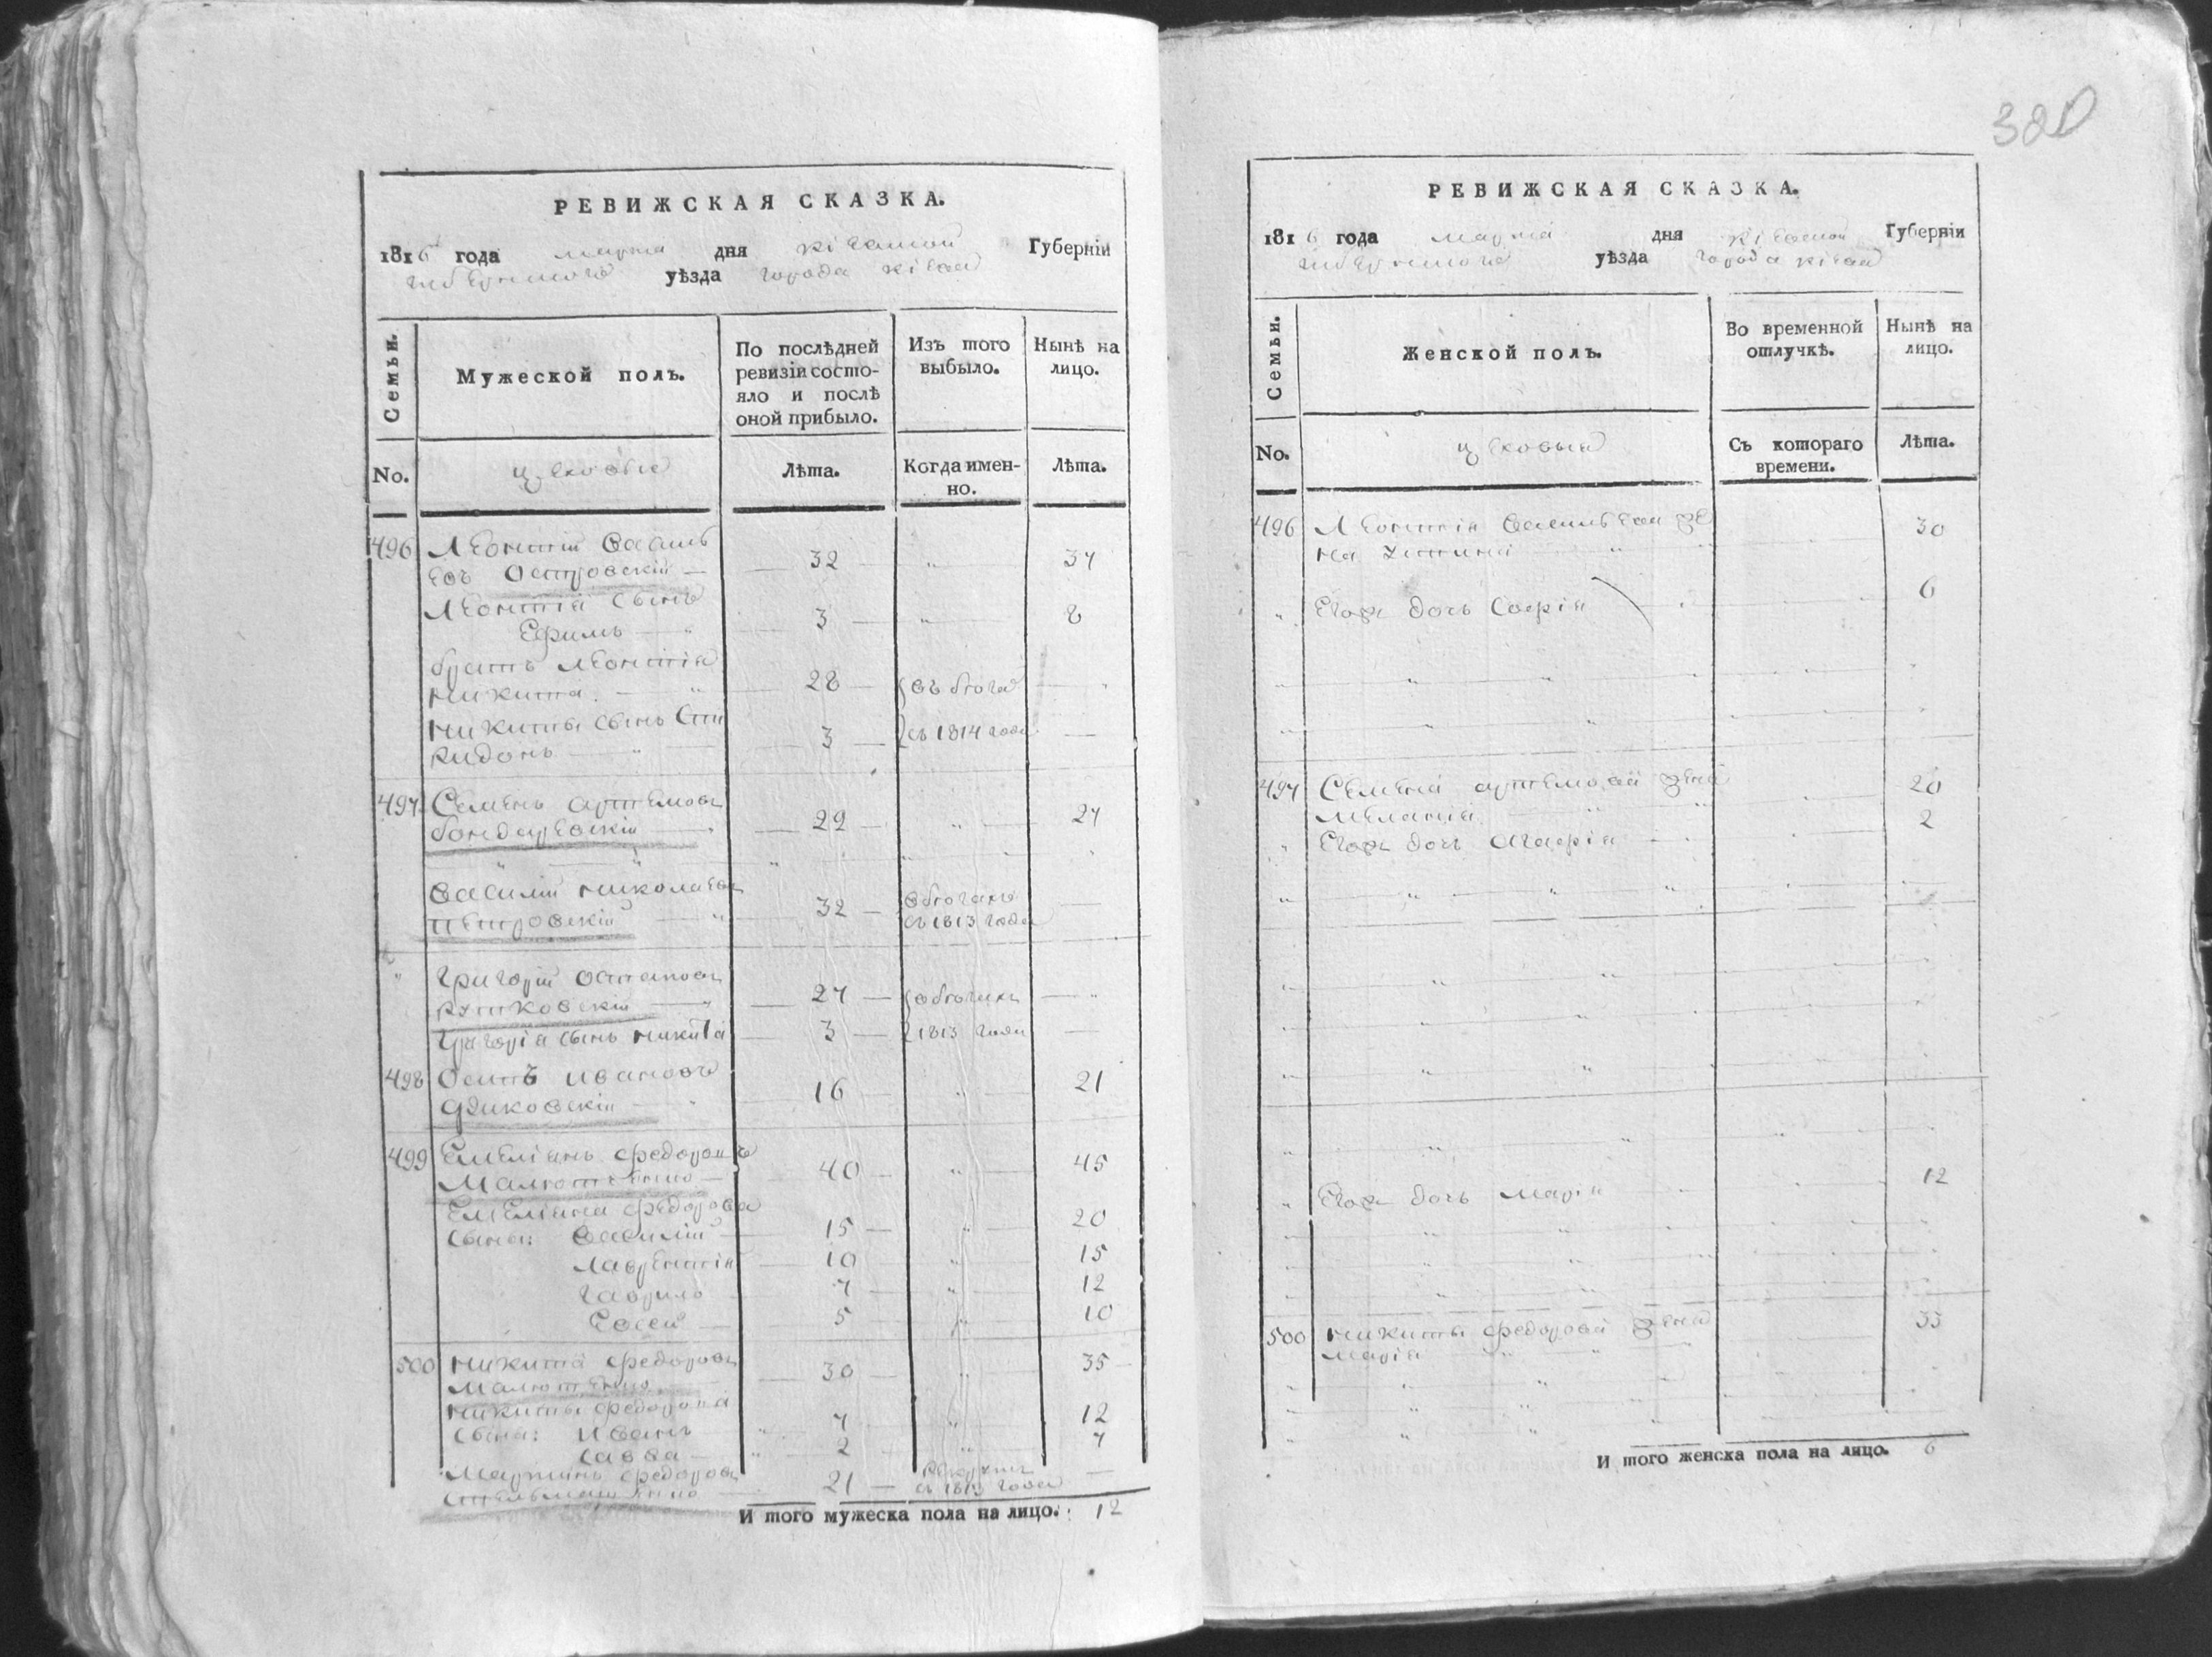 РЕВИЖСКАЯ СКАЗКА.
1816 года марта дня Кіевской Губерніи
уѣзда города Кіева
Семьи.
Мужеской полъ.
По послѣдней
ревизіи состо-
яло и послѣ
оной прибыло.
Изъ того
выбыло.
Нынѣ на
лицо.
No.
цеховые
Лѣта.
Когда имен-
но.
Лѣта.
496 Леонтій Василь
евъ Островскій 32 " 37
Леонтія сынъ
Ефимъ 3 " 8
братъ Леонтія
Никита 28 въ бѣгах
Никиты сынъ Спи
ридонъ 3 съ 1814 года
497 Семенъ Артемовъ
бондаревскій 22 " 27
Василій Николаевъ
Петровскій 32 съ 1813 года
" Григорій Остаповъ
Рутковскій 27
Григорія сынъ Никита 3 1813 года
498 Осипъ Ивановъ
16 " 21
499 Емеліянъ Федоровъ
40 " 45
Емеліяна Федорова
сына: Василій 15 " 20
Лаврентій 10 " 15
Гаврило 7 " 12
Евсей 5 " 10
500 Никита Федоровъ
30 " 35
Никиты Федорова
сына: Иванъ 7 " 12
Савва 2 " 7
Мартинъ Федоровъ
21 съ 1813 года
И того мужеска пола на лицо. 12
380
РЕВИЖСКАЯ СКАЗКА.
1816 года марта дня Кіевской Губерніи
уѣзда города Кіева
Семьи.
Женской полъ.
Во временной
отлучкѣ.
Нынѣ на
лицо.
No.
цеховые
Съ котораго
времени.
Лѣта.
496 Леонтія Васильева же
на 30
" Егож дочь Софія 6
497 Семена Артемова жена
Меланія 20
" Егож дочь Агафія 2
" Егож дочь Марія 12
500 Никиты Федорова жена
Марія 33
И того женска пола на лицо. 6